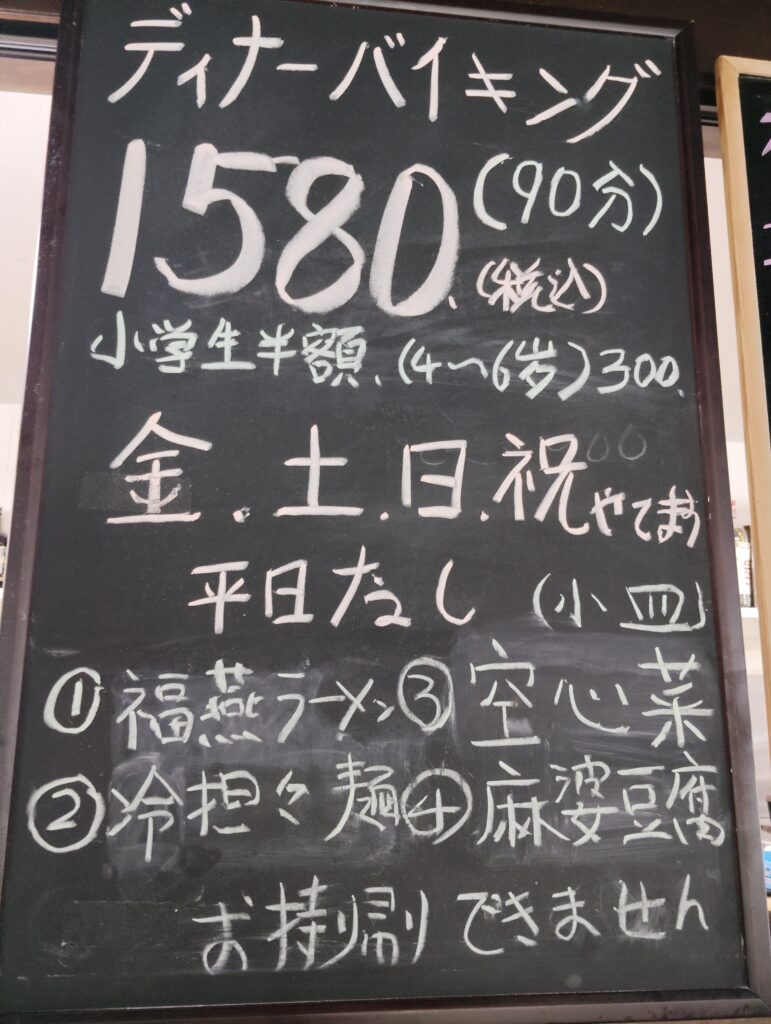 ディナーバイキング
1580.(90分)
(税込)
小学生半額、(4〜6岁)300.
金.土.日.祝やてます
平日なし (小皿)
①福燕ラーメン③空心菜
②冷担々麺④麻婆豆腐
お持帰りできません